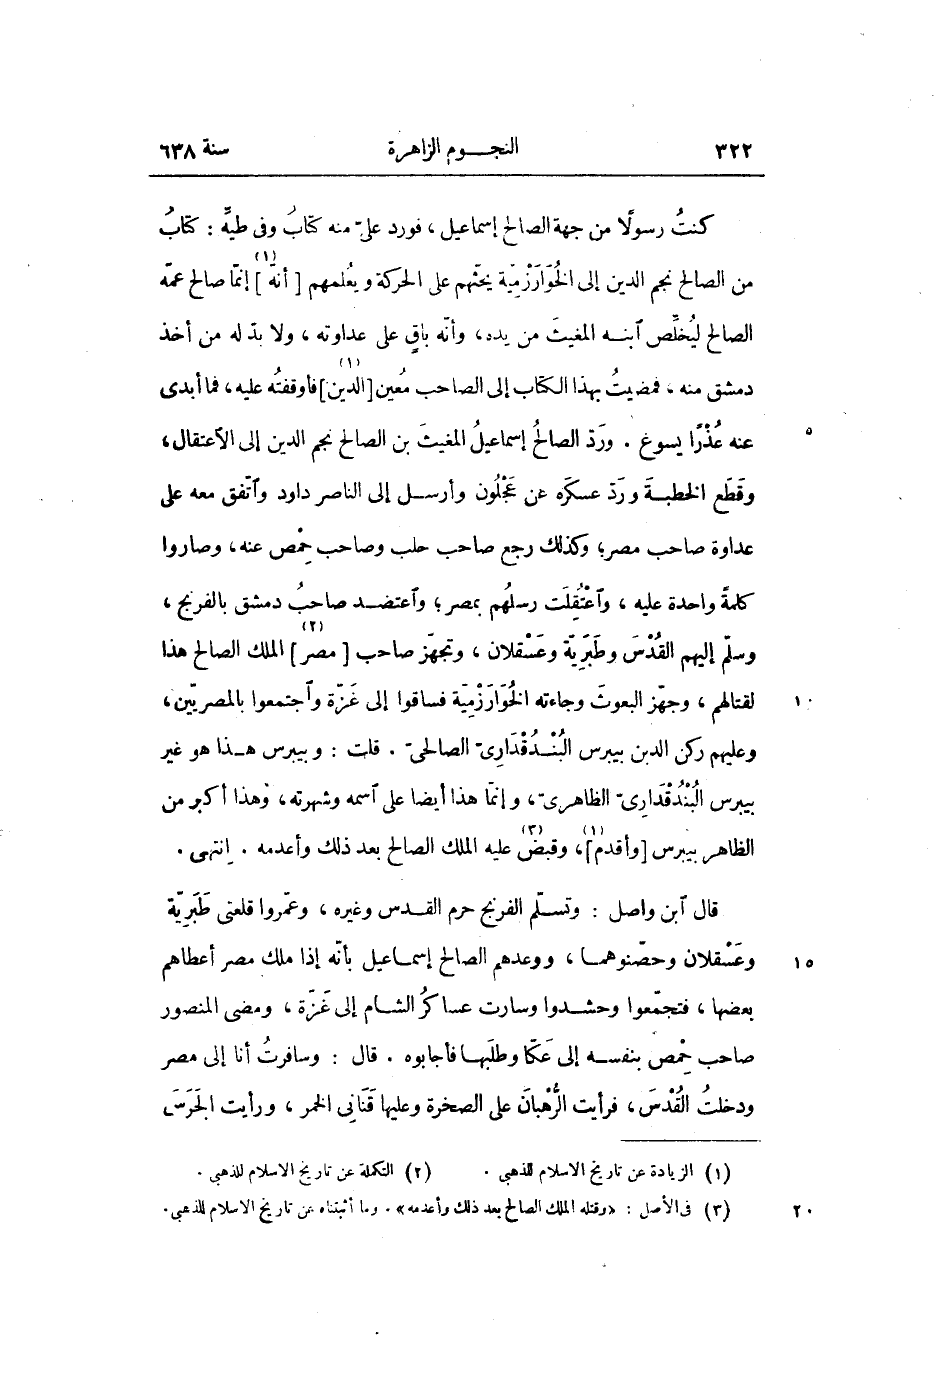 ٣٢٢ النجـــوم الزاهرة سنة ٦٣٨
كنتُ رسولًا من جهة الصالح إسماعيل، فورد علىّ منه كتابٌ وفى طيِّه : كتابٌ
من الصالح نجم الدين إلى الخُوَارَزْمِيّة يحثّهم على الحركة ويُعْلمهم [أنه](١) إنّما صالح عمّه
الصالح ليُخَلِّص آبنــه المغيثَ من يده، وأنّه باقٍ على عداوته، ولا بدّ له من أخذ
دمشق منه، فمضيتُ بهذا الكتاب إلى الصاحب مُعين [الدين](١) فأوقفتُه عليه، فما أبدى
عنه عُذْرًا يسوغ. ورَدّ الصالحُ إسماعيلُ المغيثَ بن الصالح نجم الدين إلى الآعتقال، ٥
وقَطَع الخطبــةَ ورَدّ عسكرَه عن عَجْلُون وأرســل إلى الناصر داود وآتّفق معه على
عداوة صاحب مصر؛ وكذلك رجع صاحب حلب وصاحب حِمْص عنه، وصاروا
كلمةً واحدة عليه، وآعْتُقِلَت رسلهُم بمصر؛ وآعتضــد صاحبُ دمشق بالفرنج،
وسلّم إليهم القُدْسَ وطَبَرِيّة وعَسْقلان، وتجهّز صاحب [مصر](٢) الملك الصالح هذا
لقتالهم، وجهّز البعوثَ وجاءته الخُوَارَزْمِيّة فساقوا إلى غَزّة وآجتمعوا بالمصريّين، ١٠
وعليهم ركن الدين بيبرس البُنْــدُقْدَارىّ الصالحىّ. قلت : وبيبرس هــذا هو غير
بيبرس البُنْدُقْدَارىّ الظاهرىّ، وإنّما هذا أيضا على آسمه وشهرته، وهذا أكبر من
الظاهر بيبرس [وأقدم](١)، وقبض(٣) عليه الملك الصالح بعد ذلك وأعدمه. انتهى.
قال آبن واصل : وتســلّم الفرنج حرم القــدس وغيره، وعمّروا قلعتى طَبَرِيّة
وعَسْقلان وحصّنوهمــا، ووعدهم الصالح إسمــاعيل بأنّه إذا ملك مصر أعطاهم ١٥
بعضها، فتجمّعوا وحشــدوا وسارت عساكرُ الشــام إلى غَزّة، ومضى المنصور
صاحب حِمْص بنفســه إلى عَكّا وطلَبهــا فأجابوه. قال : وسافرتُ أنا إلى مصر
ودخلتُ القُدْسَ، فرأيت الرُّهْبانَ على الصخرة وعليها قَنَانِى الخمر، ورأيت الجَرَسَ
(١) الزيادة عن تاريخ الاسلام للذهبى. (٢) التكملة عن تاريخ الاسلام للذهبى.
(٣) فى الأصل : «وقتله الملك الصالح بعد ذلك وأعدمه». وما أثبتناه عن تاريخ الاسلام للذهبى. ٢٠